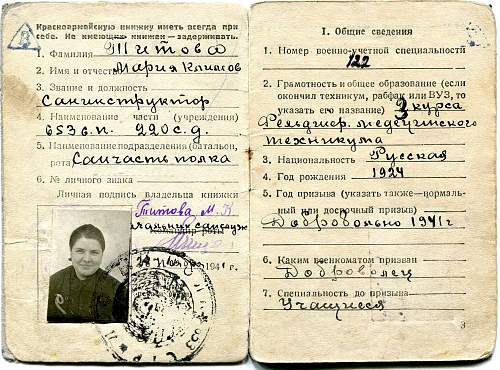 Красноармейскую книжку иметь всегда при
себе. Не имеющих книжек — задерживать.
1. Фамилия Титова
2. Имя и отчество Мария
3. Звание и должность
Санинструктор
4. Наименование части (учреждения)
653 с.п. 220 с.д.
5. Наименование подразделения (батальон,
рота) Санчасть полка
6. № личного знака
Личная подпись владельца книжки
Титова М. К
Командир роты
194 г.
I. Общие сведения
1. Номер военно-учетной специальности
122
2. Грамотность и общее образование (если
окончил техникум, рабфак или ВУЗ, то
указать его название) 3 курса
Фельдшер. медицинского
техникума
3. Национальность Русская
4. Год рождения 1924
5. Год призыва (указать также—нормаль-
ный или досрочный призыв)
Добровольно 1941 г
6. Каким военкоматом призван
Доброволец
7. Специальность до призыва
Учащиеся
3